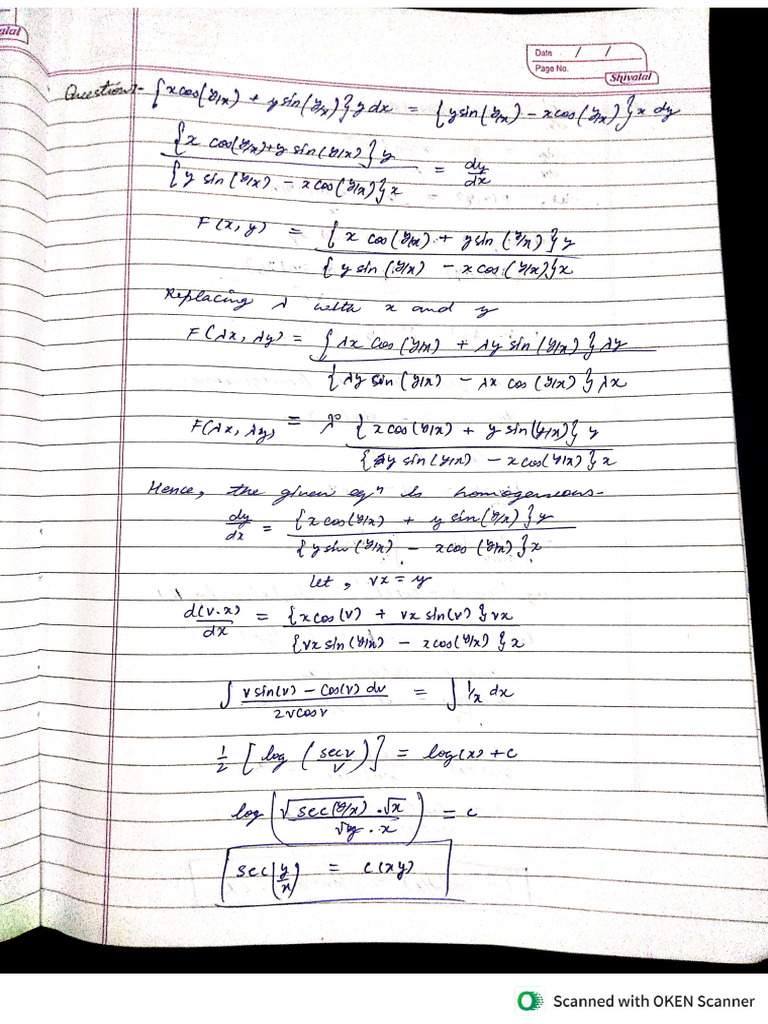 alal
Date / /
Page No.
Shivalal
Question:- {xcos(y/x) + ysin(y/x)}y dx = {ysin(y/x) - xcos(y/x)}x dy
{x cos(y/x)+y sin(y/x)}y / {y sin(y/x) - xcos(y/x)}x = dy/dx
F(x, y) = {x cos(y/x) + ysin(y/x)}y / {y sin(y/x) - xcos(y/x)}x
Replacing λ with x and y
F(λx, λy) = {λx cos(y/x) + λy sin(y/x)}λy / {λy sin(y/x) - λx cos(y/x)}λx
F(λx, λy) = λ⁰ {xcos(y/x) + y sin(y/x)}y / {y sin(y/x) - xcos(y/x)}x
Hence, the given eqⁿ is homogeneous-
dy/dx = {xcos(y/x) + y sin(y/x)}y / {y sin(y/x) - xcos(y/x)}x
Let, vx = y
d(v.x)/dx = {xcos(v) + vx sin(v)}vx / {vx sin(y/x) - xcos(y/x)}x
∫ vsin(v) - cos(v) dv / 2vcosv = ∫ 1/x dx
1/2 [log (secv/v)] = log(x) + c
log(√sec(y/x) . √x / √y . x) = c
sec(y/x) = c(xy)
Scanned with OKEN Scanner